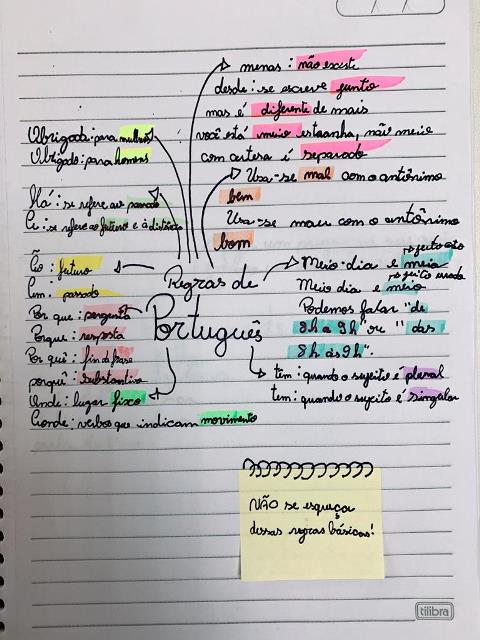 menas: não existe
desde: se escreve junto
mas é diferente de mais
você está meio estranha, não meia
com certeza é separado
Usa-se mal com o antônimo
bem
Usa-se mau com o antônimo
bom
Obrigada: para mulheres
Obrigado: para homens
Há: se refere ao passado
A: se refere ao futuro e à distância
ão: futuro
am: passado
Por que: pergunta
Porque: resposta
Por quê: fim da frase
porquê: substantivo
Onde: lugar fixo
Aonde: verbos que indicam movimento
Regras de
Português
Meio-dia e meia
jeito certo
Meio dia e meio
jeito errado
Podemos falar "de
8h a 9h" ou "das
8h às 9h".
têm: quando o sujeito é plural
tem: quando o sujeito é singular
NÃO se esqueça
dessas regras básicas!
tilibra